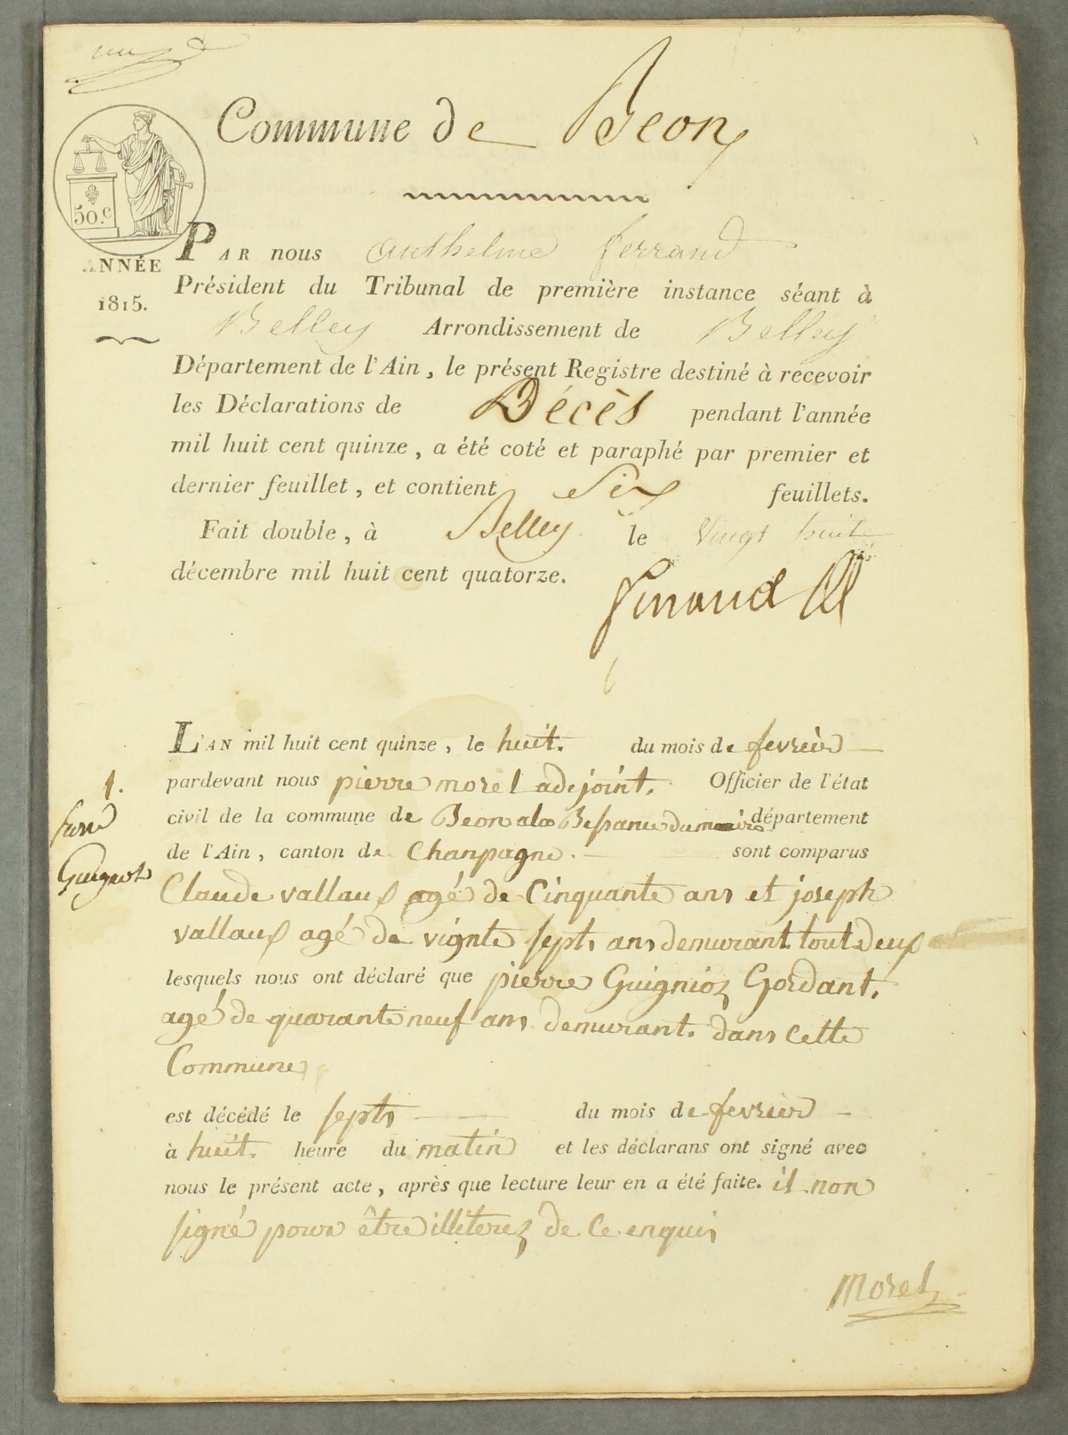 Commune de Beon
50.c
ANNÉE
1815.
PAR nous Anthelme ferrand
Président du Tribunal de première instance séant à
Belley Arrondissement de Belley
Département de l'Ain, le présent Registre destiné à recevoir
les Déclarations de Décès pendant l'année
mil huit cent quinze, a été coté et paraphé par premier et
dernier feuillet, et contient Six feuillets.
Fait double, à Belley le vingt huit
décembre mil huit cent quatorze.
L'AN mil huit cent quinze, le huit. du mois de fevrier
pardevant nous pierre morel adejoint. Officier de l'état
civil de la commune de Beon département
de l'Ain, canton de Chanpagne. sont comparus
Claude vallaux agé de Cinquante ans et joseph
vallaux agé de vignte septs ans demurant tout deux
lesquels nous ont déclaré que pierre Guignioz Gordant.
agé de quarante neuf ans demurant. dans cette
Commune
est décédé le septs du mois de fevrier
à huit. heure du matin et les déclarans ont signé avec
nous le présent acte, après que lecture leur en a été faite. il non
signé pour être illiterez de ce enquis
Morel
1.